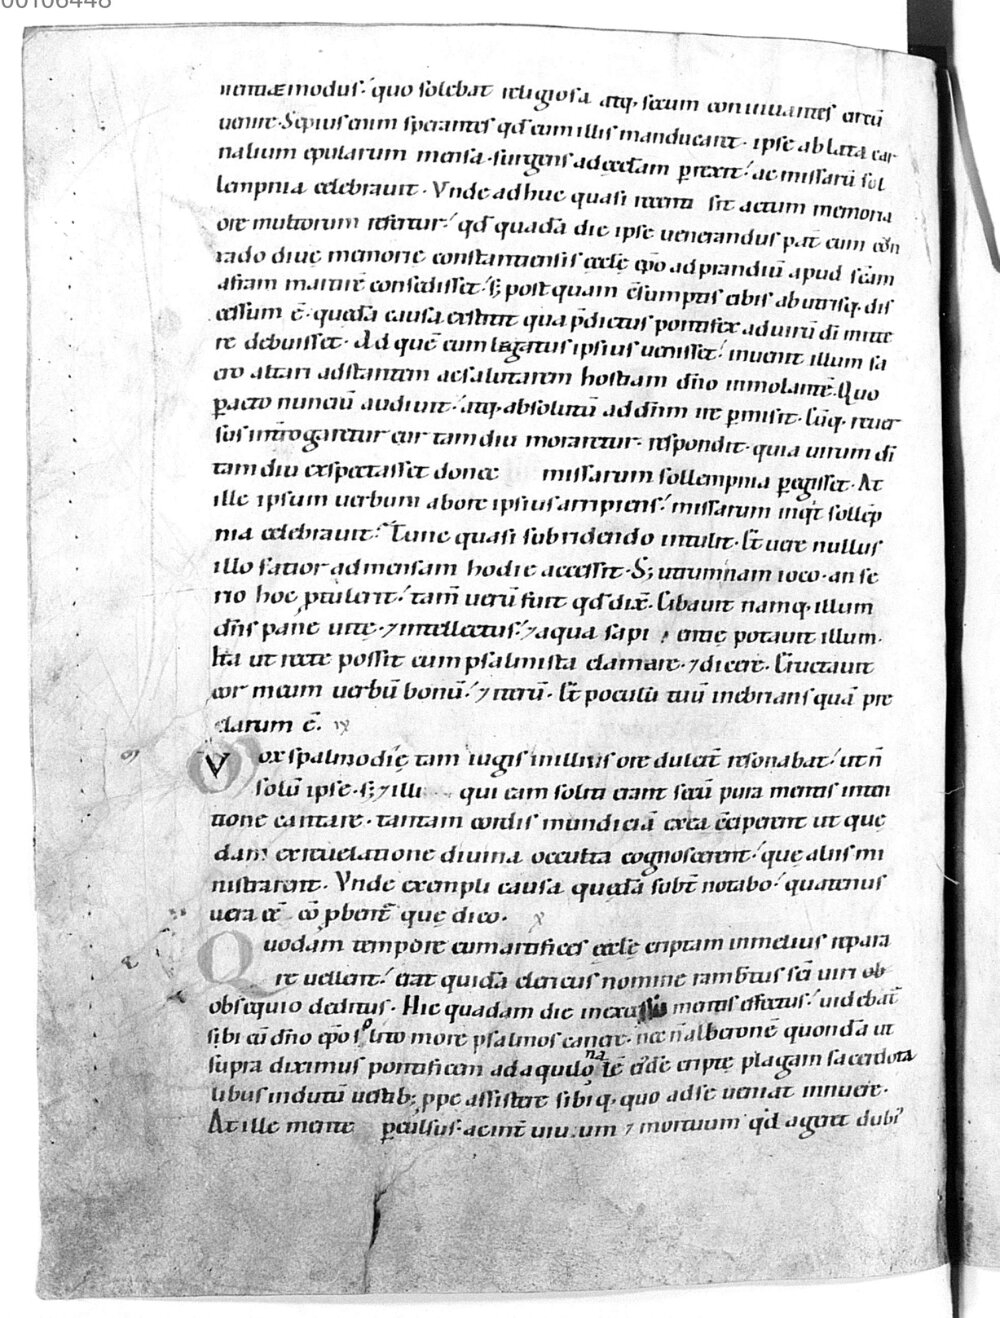 00106448
nentiæ modus, quo solebat religiosa atq; secum conuiuantes circū
uenire. Sepius enim sperantes qđ cum illis manducaret. ipse ablata car
nalium epularum mensa. surgens ad ęcclam p̱rexit, ac missarū sol
lempnia celebrauit. Vnde adhuc quasi recens sit actum memoria
ore multorum refertur, qđ quadā die ipse uenerandus pat̄ cum cōn
rado diuę memorię constantiensis ęcclę ep̄o ad prandiū apud sc̄am
afram martirē consedisset. s; postquam c̄sumptis cibis ab utrisq; dis
cessum ē. quędā causa extitit qua p̄dictus pontifex ad uirū dī mitte
re debuisset. Ad quē cum legatus ipsius uenisset, inuenit illum sa
cro altari adstantem ac salutarem hostiam dn̄o immolantē. Quo
p̱acto nunciū audiuit, atq; absolutū ad dn̄m ire p̱misit. Cūq; reuer
sus int̄rogaretur cur tam diu moraretur. respondit. quia uirum dī
tam diu exspectasset donec missarum sollempnia p̱egisset. At
ille ipsum uerbum ab ore ipsius arripiens, missarum inqt̄ sollēp
nia celebrauit? Tunc quasi subridendo intulit. Et uere nullus
illo satior ad mensam hodie accessit. S; utrumnam ioco. an se
rio hoc ptulerit, tam̄ uerū fuit qđ dix̄. Cibauit namq; illum
dn̄s pane uite. ⁊ intellectus, ⁊ aqua sapientię potauit illum.
Ita ut recte possit cum psalmista clamare. ⁊ dicere. Eructauit
cor meum uerbū bonū, ⁊ iterū. Et poculū tuū inebrians quā pre
clarum ē. ix
Vox spalmodię tam iugis in illius ore dulcit̄ resonabat, ut n̄
solū ipse. s; ⁊ illi qui eam soliti erant secū pura mentis inten
tione cantare. tantam cordis mundiciā exea c̄ciperent ut que
dam ex reuelatione diuina occulta cognoscerent, quę aliis mi
nistrarent. Vnde exempli causa quędā subt̄ notabo, quatenus
uera eē cōpbent̄ quę dico. x
Quodam tempore cum artifices ęcclę criptam in melius repara
re uellent, erat quidā clericus nomine rambtus sc̄i uiri ob
obsequio deditus. Hic quadam die in mentis effectus, uidebat̄
sibi cū dn̄o ep̄o solito more psalmos canere. necn̄ alberonē quondā ut
supra diximus pontificem ad aquilonalē eidē criptę plagam sacerdota
libus indutū uestib; ppe assistere sibi q; quo ad se ueniat innuere.
At ille mente p̱culsus. ac int̄ uiuum ⁊ mortuum qđ ageret dubi